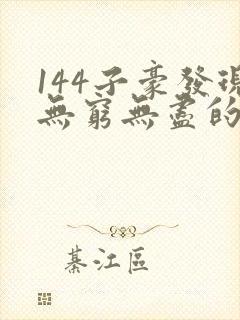 144子豪發現
無窮無盡的
綦江區